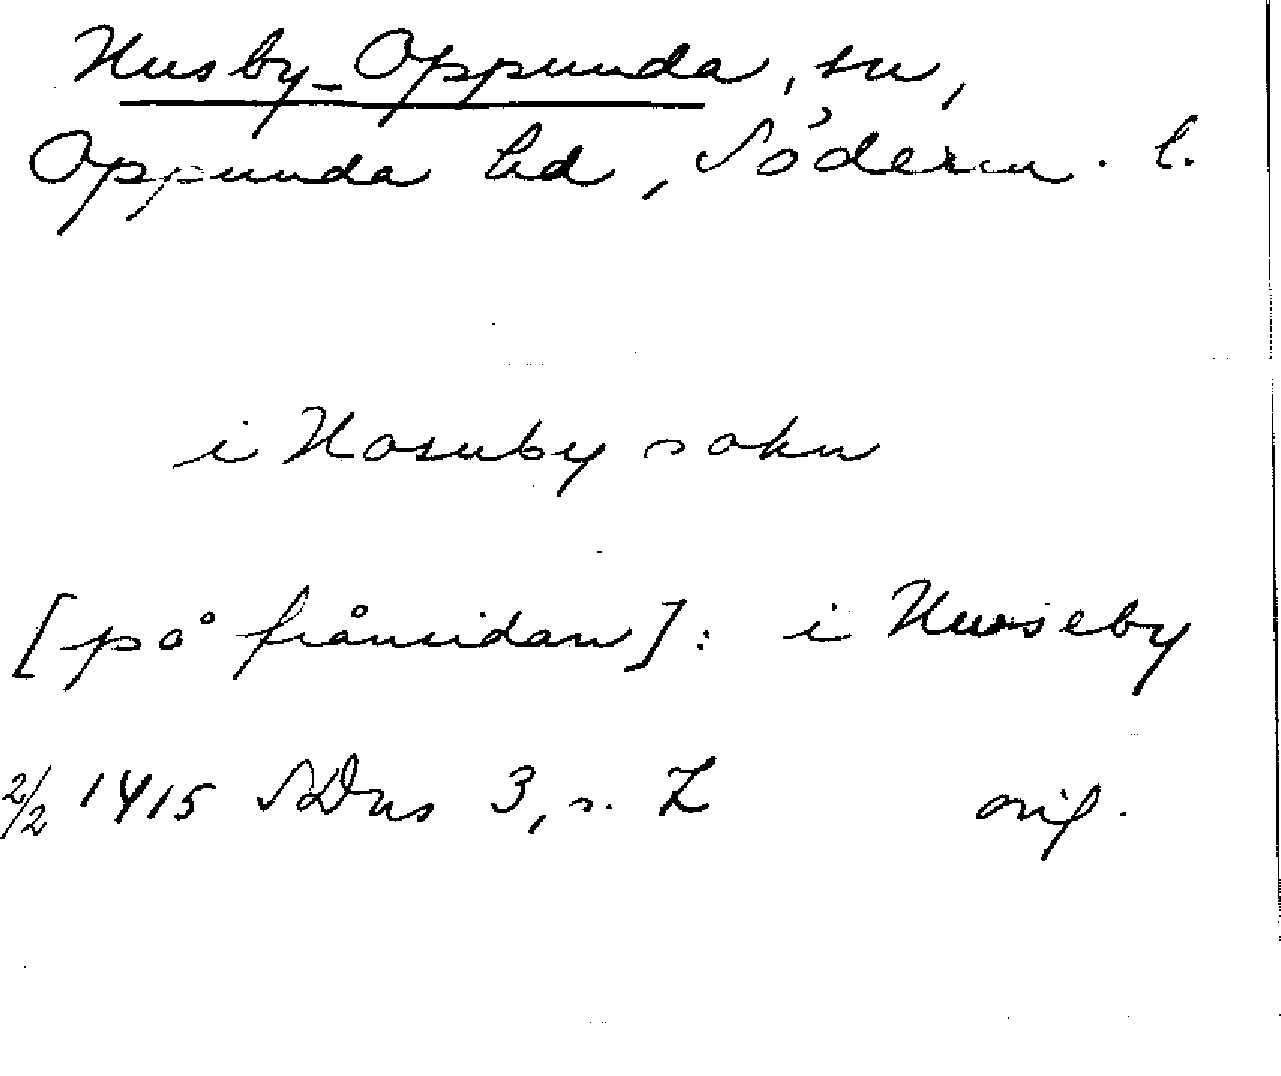 Husby-Oppunda, sn,
Oppunda hd, Söderm. l.
i Hosuby sokn
[på frånsidan]: i Huuseby
2/2 1415 SDns 3, s. Z orig.